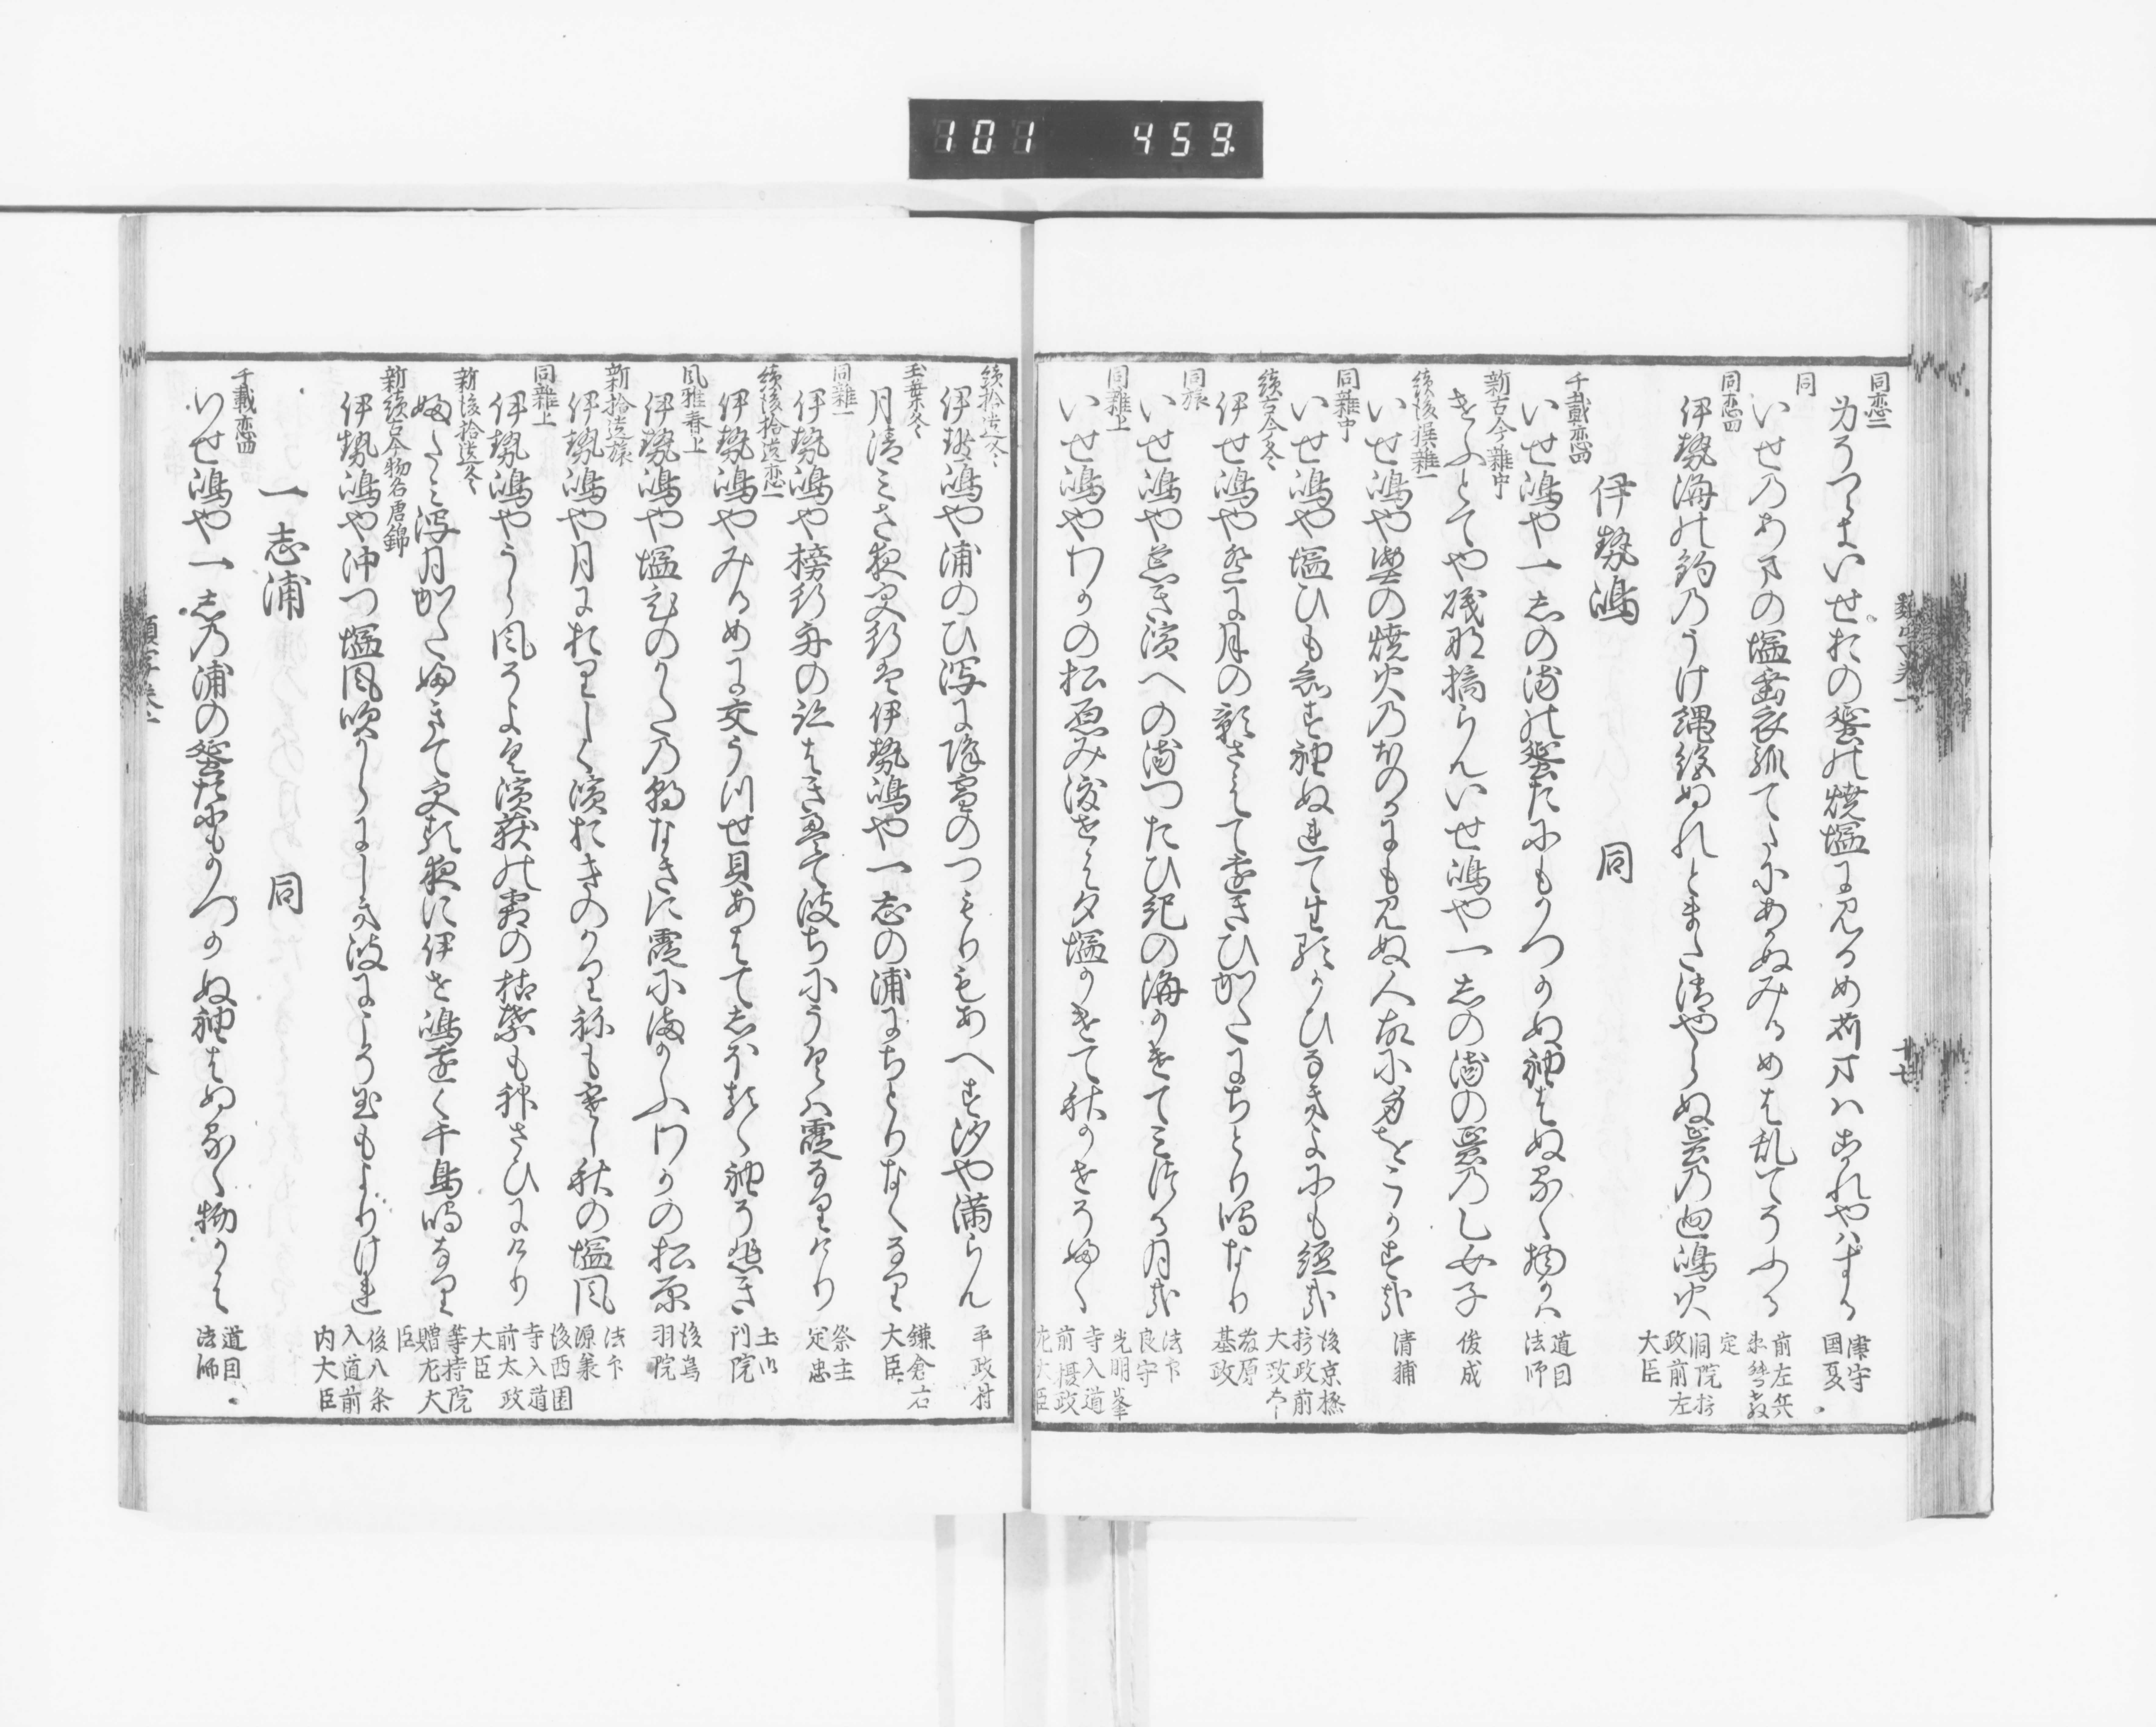 101 459
同恋二
かうつらよいせおの蜑の焼塩にみるめ苅てハこれやハする 津守国夏
同
いせのあまの塩垂衣孤てたにあかぬみるめは乱てそふる 前左兵衛督教定
同恋四
伊勢海の釣のうけ縄絶ぬれとまた 洞院摂政前左大臣
伊勢嶋 同
千載恋四
いせ嶋や一志の浦の蜑たにもかつかぬ袖はぬるゝ物かは 道因法師
新古今雑中
けふとてや礒那摘らんいせ嶋や一志の浦の蜑の乙女子 俊成
続後撰雑一
いせ嶋や蜑の焼火のほのかにもみぬ人故に身をこかす哉 清輔
同雑中
いせ嶋や塩ひも知す袖ぬれて生るかひなき世にも経哉 後京極摂政前太政大臣
続古今冬
伊せ嶋や遥に月の影さえて遠きひかたにちとり鳴なり 藤原基政
同旅
いせ嶋や荒き濱への浦つたひ紀の海かけてみつる月哉 法印良守
同雑上
いせ嶋やわかの松原み渡せは夕塩かけて秋かせそふく 光明峯寺入道前摂政左大臣
続拾遺冬
伊勢嶋や浦のひ潟に降雪のつもりもあへす汐や満らん 平政村
玉葉冬
月清みさ夜更行は伊勢嶋や一志の浦にちとりなくなり 鎌倉右大臣
同雑一
伊勢嶋や榜行舟の跡はきえて波ちにうくハ霞なりけり 祭主定忠
続後拾遺恋一
伊勢嶋やみるめに交うつせ貝あはてしほるゝ袖そ悲き 土御門院
風雅春上
伊勢嶋や塩ひのかたの朝なきに霞にまかふわかの松原 後鳥羽院
新拾遺旅
伊勢嶋や月におりしく濱おきのかり祢も寒し秋の塩風 法印源兼
同雑上
伊勢嶋やうら風そよく濱荻の霜の枯葉も神さひにけり 後西園寺入道前太政大臣
新後拾遺冬
婦けゐ潟月かたふきて更る夜に伊せ嶋遠く千鳥鳴なり 等持院贈左大臣
新続古今物名唐錦
伊勢嶋や沖つ塩風吹からにしき波にこそ玉もよりけれ 後八条入道前内大臣
一志浦 同
千載恋四
いせ嶋や一志の浦の蜑たにもかつかぬ袖はぬるゝ物かは 道因法師